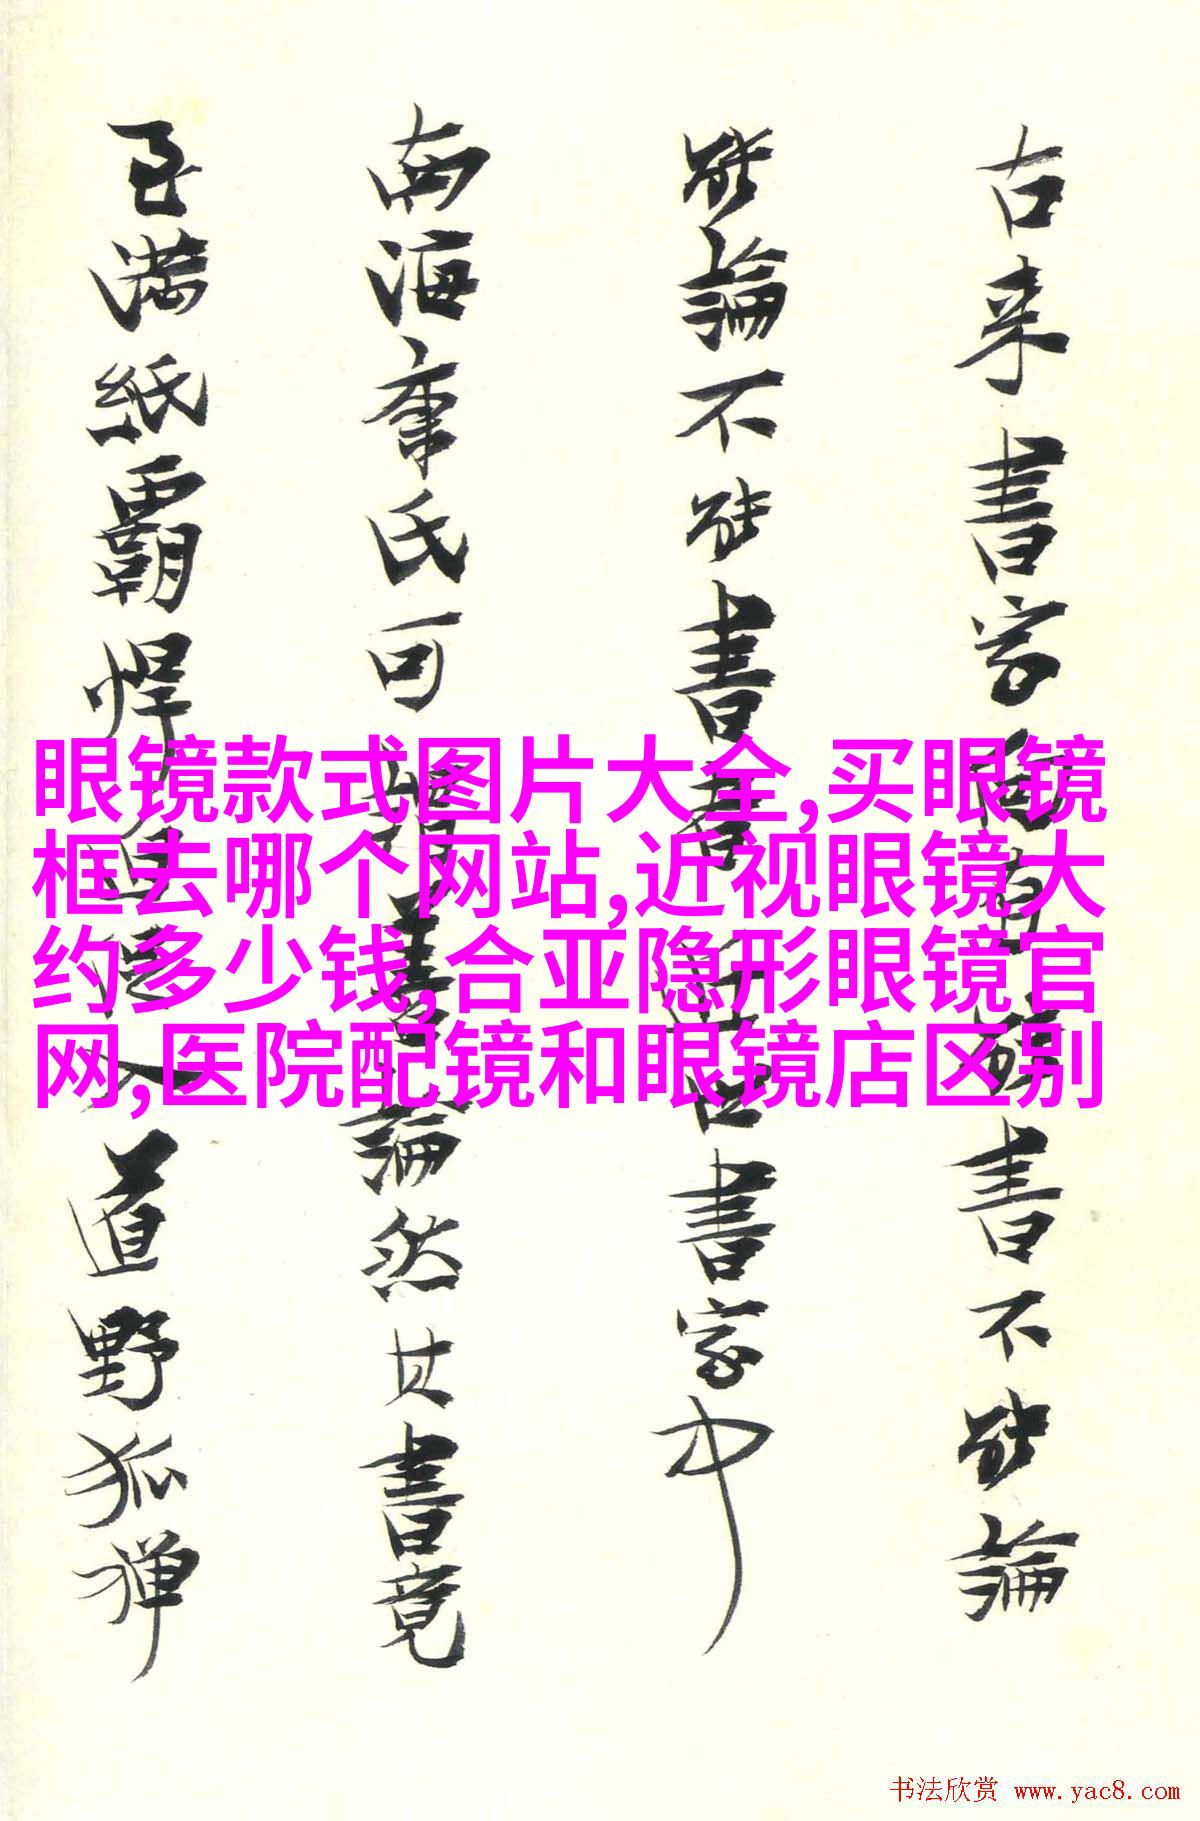 古来書家有能書不能論
能論不能書者書家中
南海康氏可謂善論然其書竟
至满紙霸悍道野狐禅
眼镜款式图片大全,买眼镜
框去哪个网站,近视眼镜大
约多少钱,合亚隐形眼镜官
网,医院配镜和眼镜店区别
书法欣赏 www.yac8.com